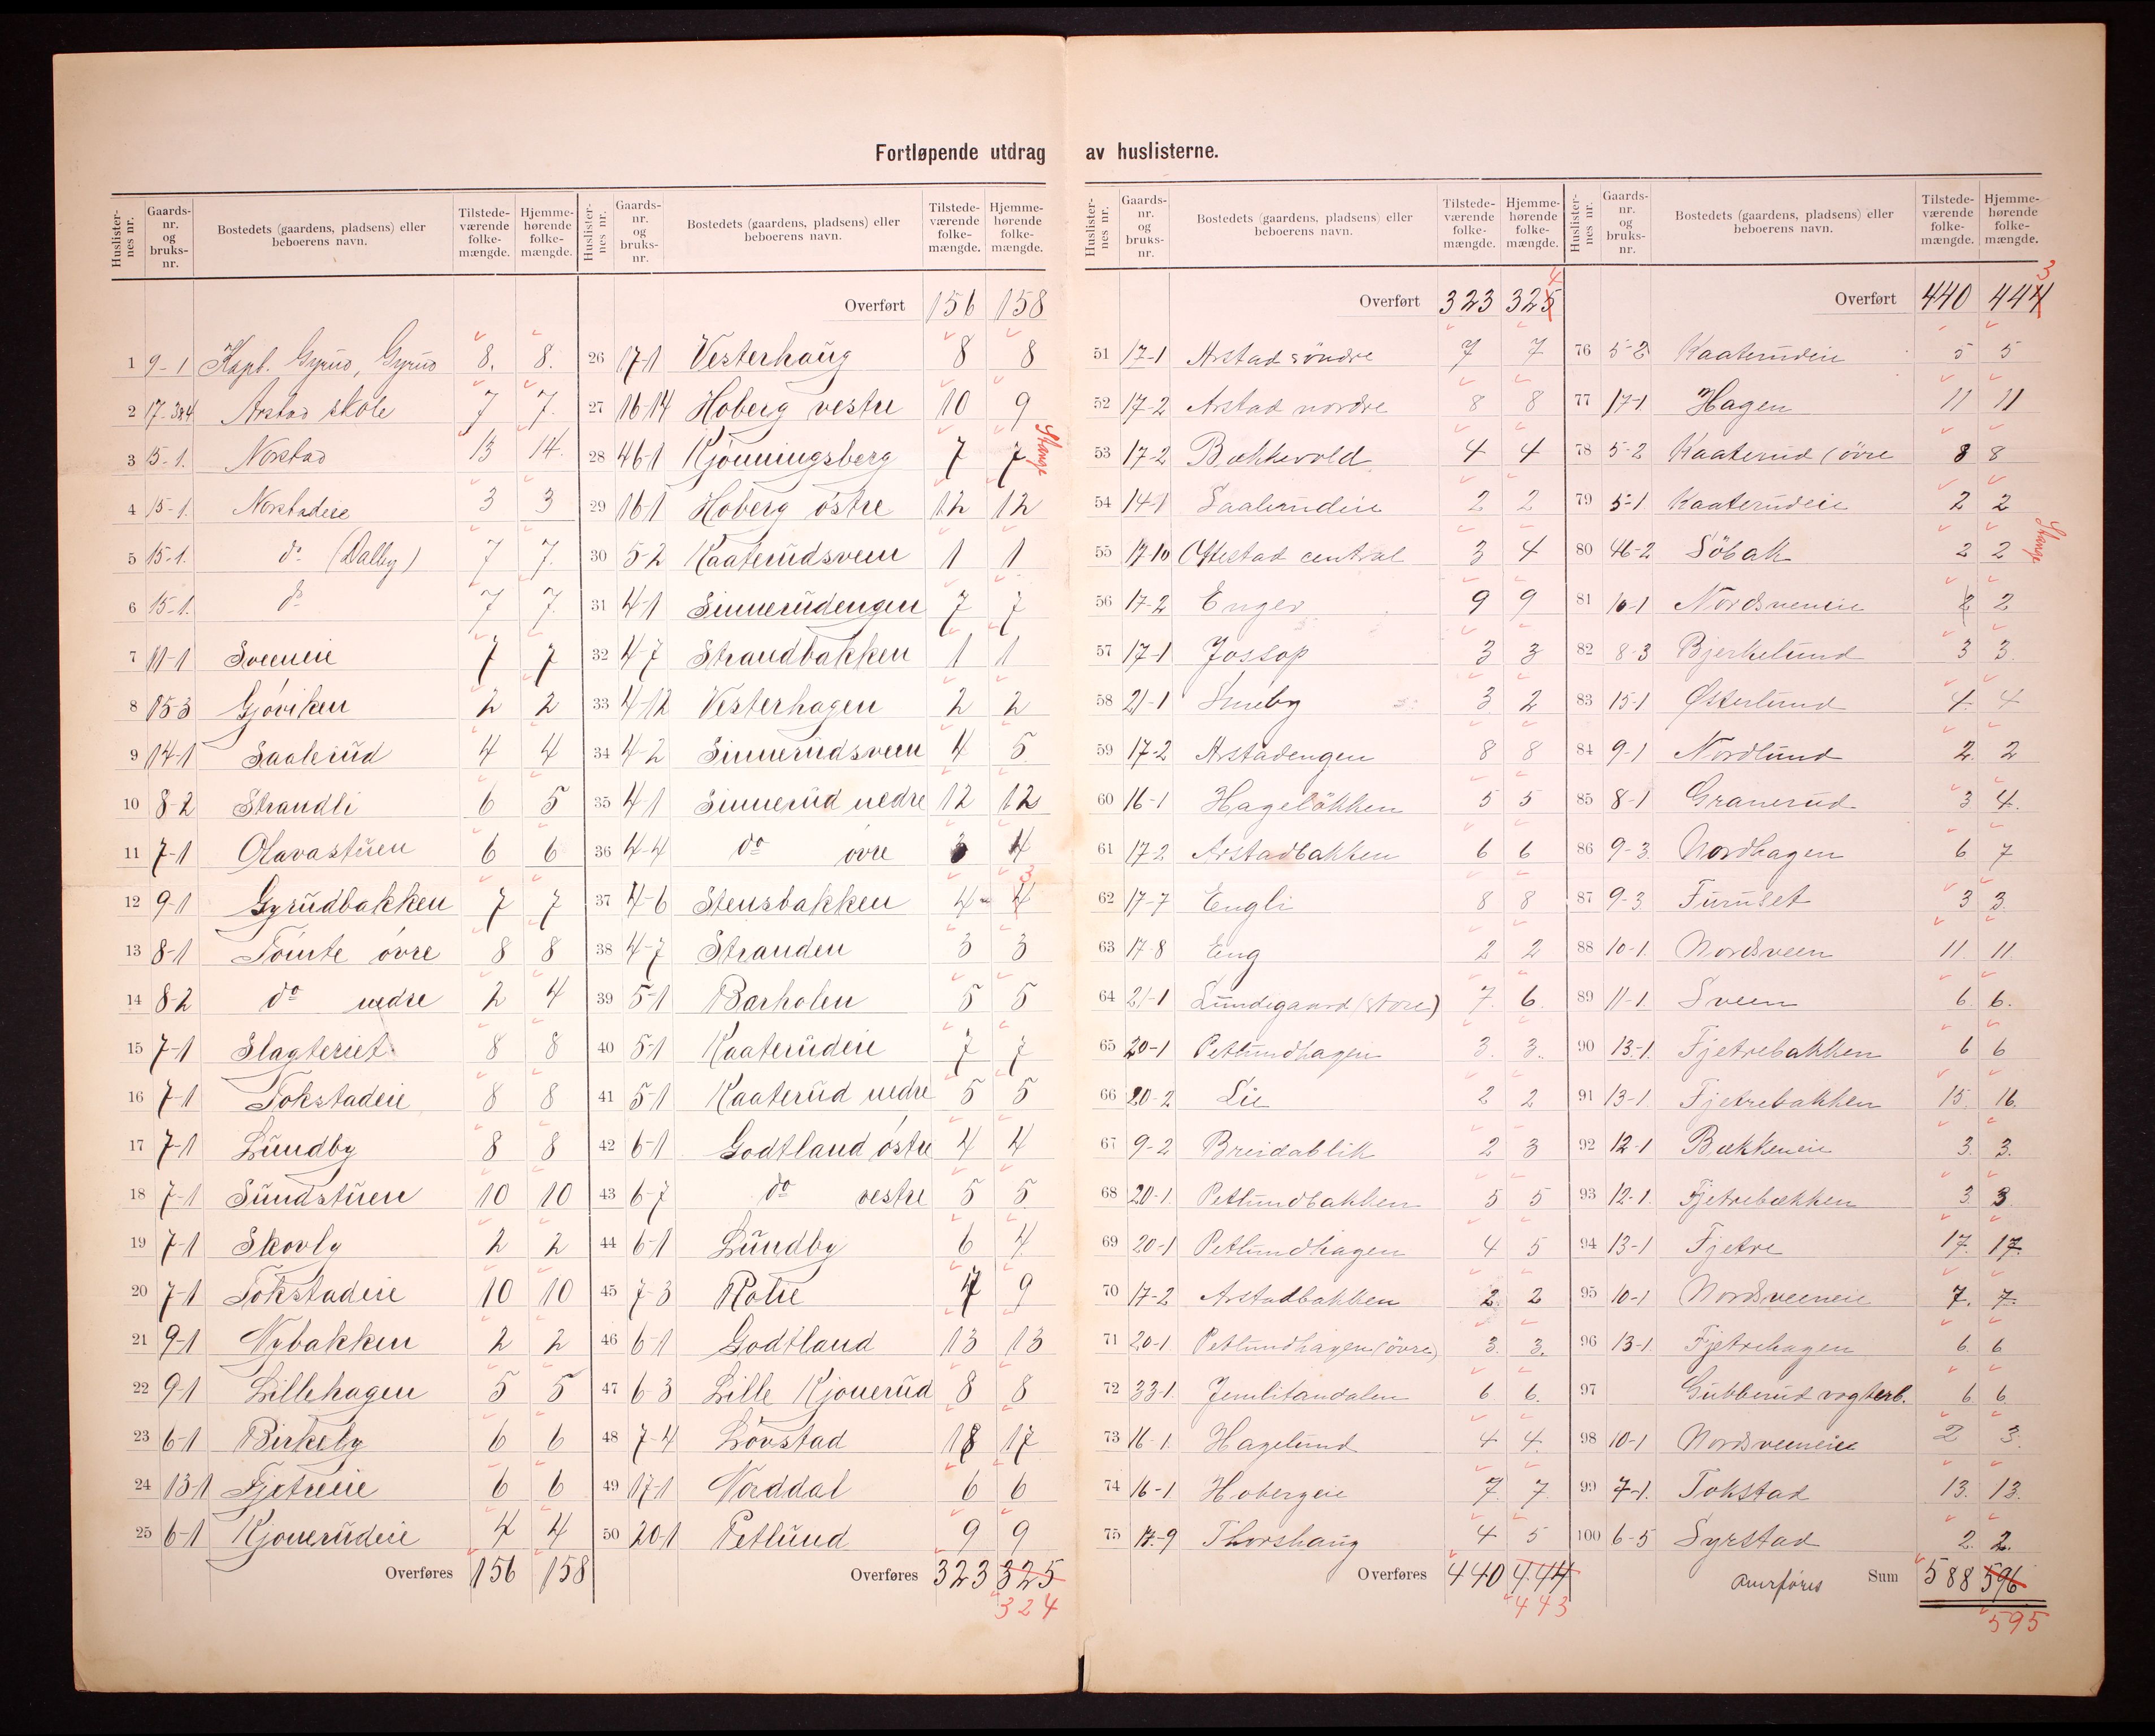 Fortløpende utdrag av huslisterne.
Huslister-nes nr. Gaards-nr. og bruks-nr. Bostedets (gaardens, pladsens) eller beboerens navn. Tilstede-værende folke-mængde. Hjemme-hørende folke-mængde.
1 9-1 Kapt. Gyrud, Gyrud 8. 8.
2 17-3&4 Arstad skole 7 7.
3 15-1. Norstad 13 14.
4 15-1. Norstadeie 3 3
5 15-1. do (Dalby) 7 7.
6 15-1. do 7 7.
7 11-1 Sveeneie 7 7
8 15-3 Gjøviken 2 2
9 14-1 Saalerud 4 4
10 8-2 Strandli 6 5
11 7-1 Olavastuen 6 6
12 9-1 Gyrudbakken 7 7
13 8-1 Tomte øvre 8 8
14 8-2 do nedre 2 4
15 7-1 Slagteriet 8 8
16 7-1 Tokstadeie 8 8
17 7-1 Lundby 8 8
18 7-1 Sundstuen 10 10
19 7-1 Skovly 2 2
20 7-1 Tokstadeie 10 10
21 9-1 Nybakken 2 2
22 9-1 Lillehagen 5 5
23 6-1 Birkely 6 6
24 13-1 Fjetreeie 6 6
25 6-1 Kjonerudeie 4 4
Overføres 156 158
Huslister-nes nr. Gaards-nr. og bruks-nr. Bostedets (gaardens, pladsens) eller beboerens navn. Tilstede-værende folke-mængde. Hjemme-hørende folke-mængde.
Overført 156 158
26 17-1 Vesterhaug 8 8
27 16-14 Hoberg vestre 10 9
28 46-1 Kjønningsberg 7 7 Stange
29 16-1 Hoberg østre 12 12
30 5-2 Kaaterudsveen 1 1
31 4-1 Sinnerudengen 7 7
32 4-7 Strandbakken 1 1
33 4-12 Vesterhagen 2 2
34 4-2 Sinnerudsveen 4 5
35 4-1 Sinnerud nedre 12 12
36 4-4 do øvre 3 4
37 4-6 Stensbakken 4 4 3
38 4-7 Stranden 3 3
39 5-1 Barholen 5 5
40 5-1 Kaaterudeie 7 7
41 5-1 Kaaterud nedre 5 5
42 6-1 Godtland østre 4 4
43 6-7 do vestre 5 5
44 6-1 Lundby 6 4
45 7-3 Rotie 7 9
46 6-1 Godtland 13 13
47 6-3 Lille Kjonerud 8 8
48 7-4 Lovstad 18 17
49 17-1 Norddal 6 6
50 20-1 Petlund 9 9
Overføres 323 325
324
Huslister-nes nr. Gaards-nr. og bruks-nr. Bostedets (gaardens, pladsens) eller beboerens navn. Tilstede-værende folke-mængde. Hjemme-hørende folke-mængde.
Overført 323 325 4
51 17-1 Arstad søndre 7 7
52 17-2 Arstad nordre 8 8
53 17-2 Bækkevold 4 4
54 14-1 Saalerudeie 2 2
55 17-10 Ottestad central 3 4
56 17-2 Enger 9 9
57 17-1 Jossop 3 3
58 21-1 Smeby 3 2
59 17-2 Arstadengen 8 8
60 16-1 Hageløkken 5 5
61 17-2 Arstadbakken 6 6
62 17-7 Engli 8 8
63 17-8 Eng 2 2
64 21-1 Lundegaard (store) 7. 6.
65 20-1 Petlundhagen 3. 3.
66 20-2 Lie 2 2
67 9-2 Breidablik 2 3
68 20-1. Petlundbakken 5 5
69 20-1 Petlundhagen 4 5
70 17-2 Arstadbakken 2. 2
71 20-1. Petlundhagen (øvre) 3. 3.
72 33-1. Jemlitandalen 6. 6.
73 16-1. Hagelund 4 4.
74 16-1 Hobergeie 7. 7.
75 17-9 Thorshaug 4 5
Overføres 440 444
443
Huslister-nes nr. Gaards-nr. og bruks-nr. Bostedets (gaardens, pladsens) eller beboerens navn. Tilstede-værende folke-mængde. Hjemme-hørende folke-mængde.
Overført 440 444 3
76 5-2 Kaaterudeie 5 5
77 17-1. Hagen 11 11
78 5-2 Kaaterud (øvre 8 8
79 5-1 Kaaterudeie 2 2
80 46-2 Söbak 2 2 Stange
81 10-1 Nordsveneie 2 2
82 8-3 Bjerkelund 3 3.
83 15-1 Østerlund 4. 4
84 9-1 Nordlund 2. 2
85 8-1 Granerud 3 4.
86 9-3. Nordhagen 6 7
87 9-3 Furuset 3 3.
88 10-1. Nordsveen 11. 11.
89 11-1. Sveen 6. 6.
90 13-1. Fjetrebakken 6 6
91 13-1 Fjetrebakken 15. 16.
92 12-1 Bækkeneie 3. 3.
93 12-1. Fjetrebækken 3. 3.
94 13-1 Fjetre 17. 17.
95 10-1 Nordsveeneie 7. 7.
96 13-1. Fjetrehagen 6. 6
97 Gubberud vogterb. 6 6.
98 10-1 Nordsveeneie 2 3.
99 7-1. Tokstad 13. 13.
100 6-5 Syrstad 2. 2.
Overføres Sum 588 596
595